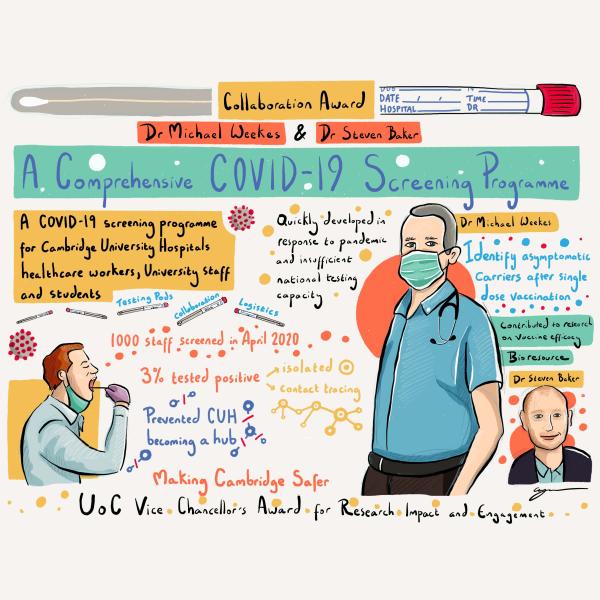 Collaboration Award
DATE / / TIME
HOSPITAL DR
Dr Michael Weekes & Dr Steven Baker
A Comprehensive COVID-19 Screening Programme
A COVID-19 screening programme
for Cambridge University Hospitals
healthcare workers, University staff
and students
Quickly developed in
response to pandemic
and insufficient
national testing
capacity
Dr Michael Weekes
Identify asymptomatic
Carriers after single
dose vaccination
Testing Pods
Collaboration
Logistics
Contributed to research
on vaccine efficacy
Bioresource
1000 staff screened in April 2020
3% tested positive
isolated
contact tracing
Dr Steven Baker
Prevented CUH
becoming a hub
Making Cambridge Safer
UoC Vice Chancellor's Award for Research Impact and Engagement